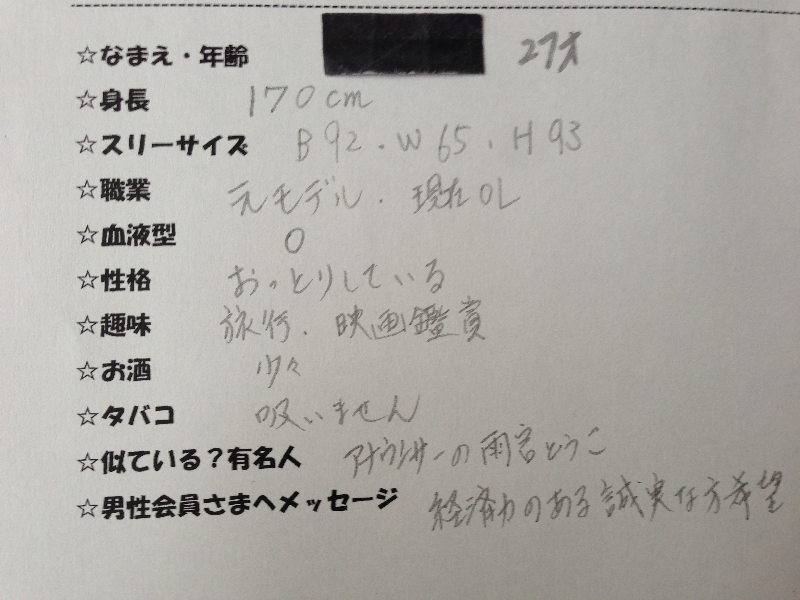 ☆なまえ・年齢 27才
☆身長 170cm
☆スリーサイズ B92.W65.H93
☆職業 元モデル.現在OL
☆血液型 O
☆性格 おっとりしている
☆趣味 旅行.映画鑑賞
☆お酒 少々
☆タバコ 吸いません
☆似ている?有名人 アナウンサーの雨宮とうこ
☆男性会員さまへメッセージ 経済力のある誠実な方希望